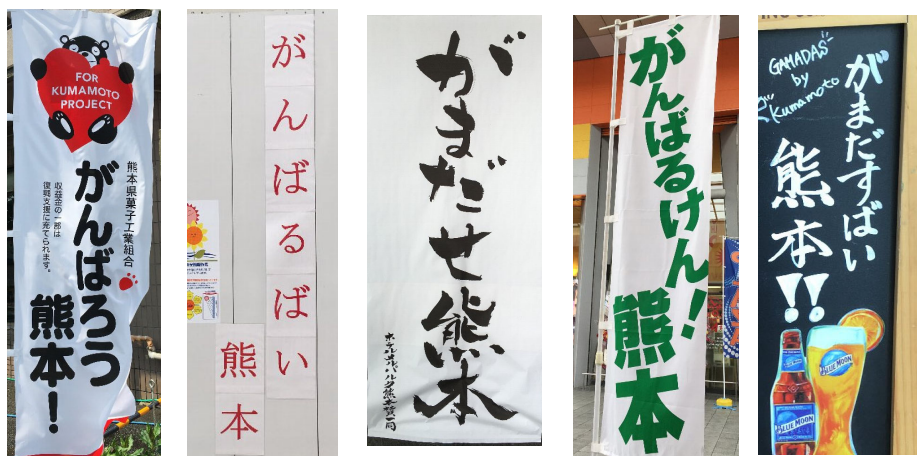 FOR
KUMAMOTO
PROJECT
熊本県菓子工業組合
がんばろう
熊本！
収益金の一部は
復興支援に充てられます。
がんばるばい
熊本
がまだせ熊本
がんばるけん！
熊本
GAMADAS
by
Kumamoto
がまだすばい
熊本!!
BLUE MOON
BLUE MOON
BLUE MOON